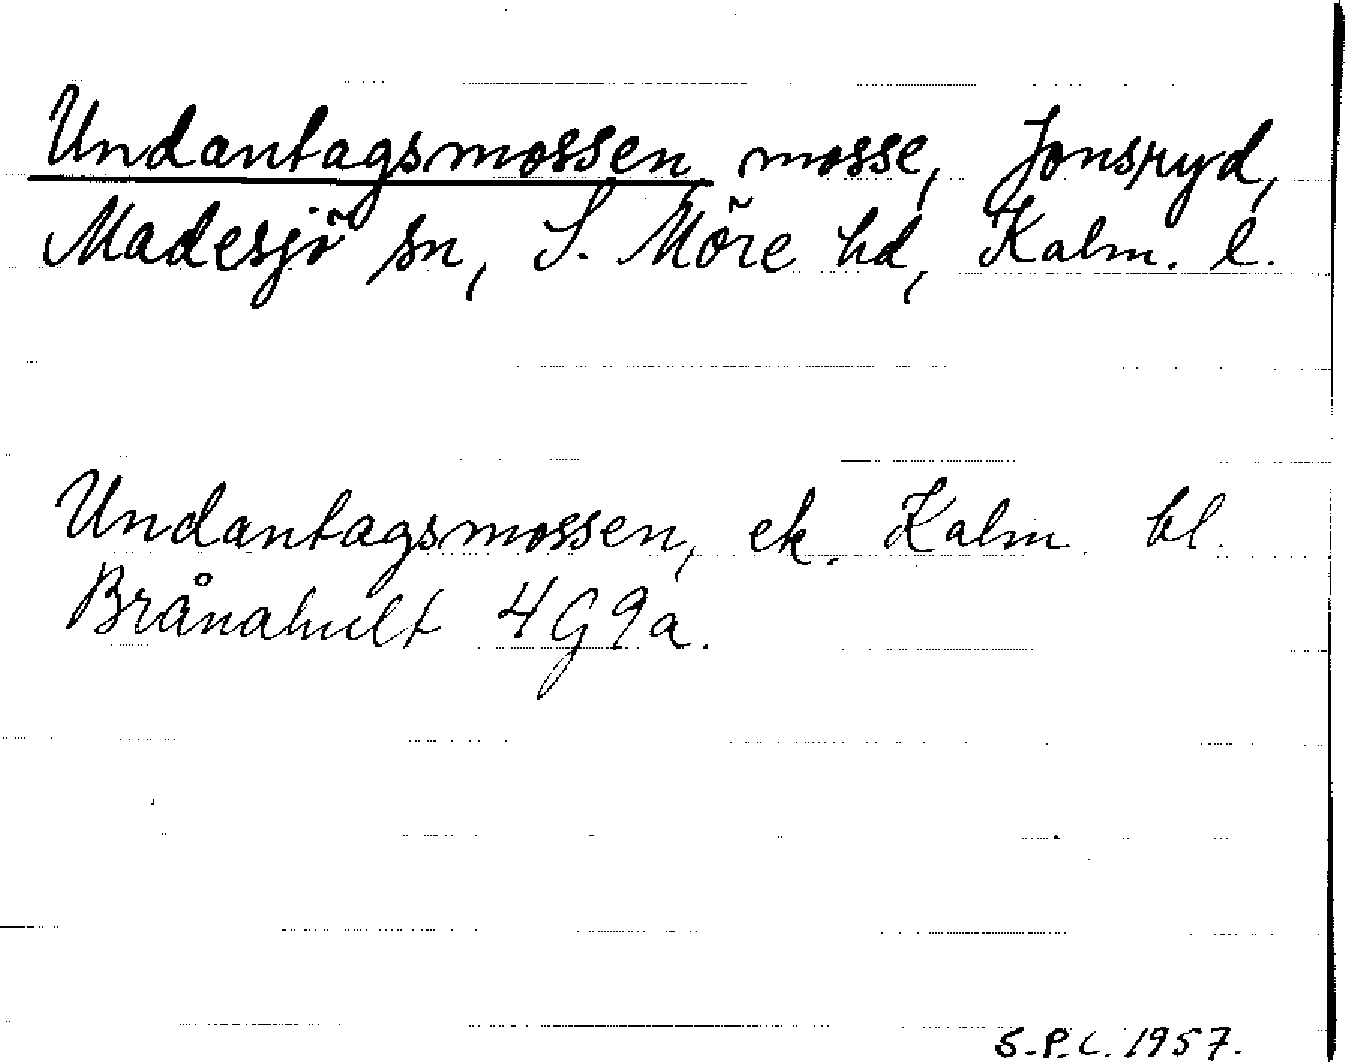 Undantagsmossen, mosse, Jonsryd,
Madesjö sn, S. Möre hd, Kalm. l.
Undantagsmossen, ek. Kalm. bl.
Brånahult 4G9a.
S.P.C. 1957.